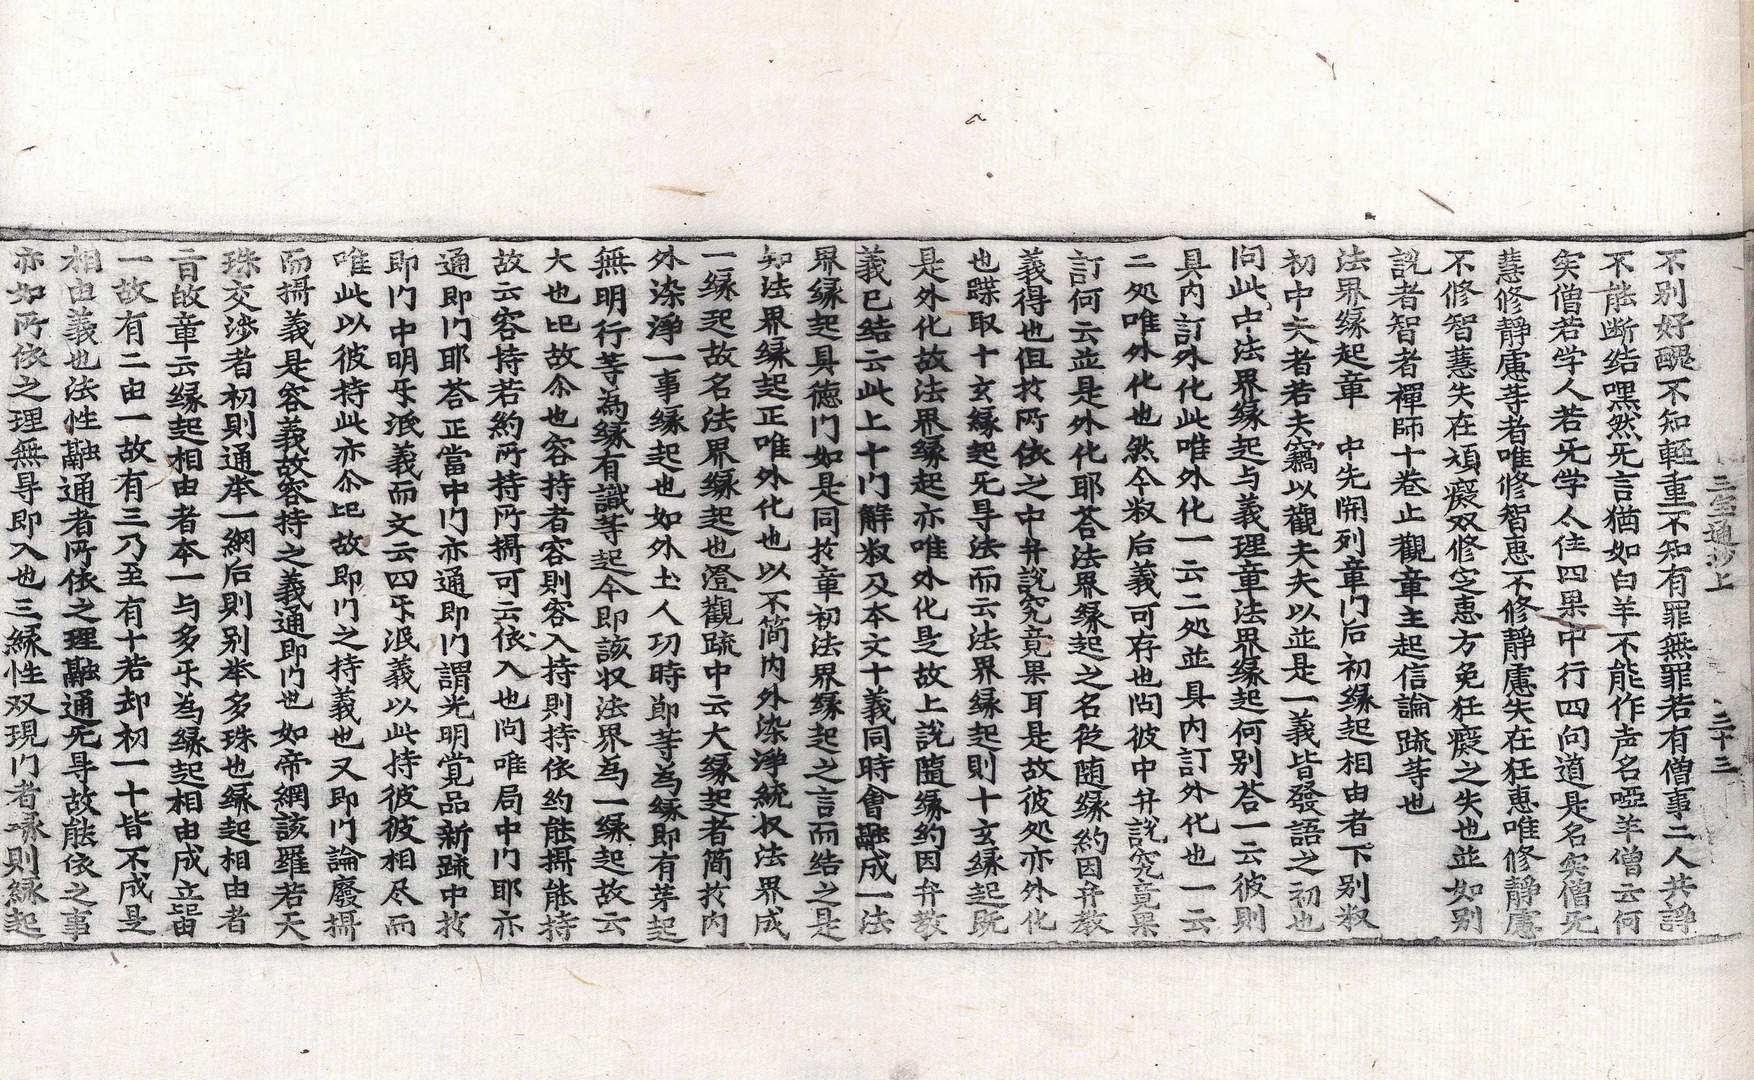 三宝通抄上　三十三
不別好醜不知輕重不知有罪無罪若有僧事二人共諍
不能断结嘿然旡言猶如白羊不能作声名啞羊僧云何
实僧若学人若旡学人住四果中行四向道是名实僧旡
慧修靜慮等者唯修智惠不修靜慮失在狂惠唯修靜慮
不修智慧失在頑癡双修㝎惠方免狂癡之失也並如別
說者智者禪師十巻止觀章主起信論䟽等也
法界縁起章　中先開列章门后初縁起相由者下别䆁
初中夫者若夫竊以觀夫夫以並是一義皆發語之初也
问此中法界縁起与義理章法界縁起何别荅一云彼則
具内訂外化此唯外化一云二处並具内訂外化也一云
二处唯外化也然今䆁后義可存也问彼中弁說究竟果
訂何云並是外化耶荅法界縁起之名従随縁約因弁教
義得也但扵所依之中弁說究竟果耳是故彼处亦外化
也䐑取十玄縁起旡㝵法而云法界縁起則十玄縁起既
是外化故法界縁起亦唯外化是故上說隨縁約因弁教
義已结云此上十门解䆁及本文十義同時會融成一法
界縁起具德门如是同扵章初法界縁起之言而结之是
知法界縁起正唯外化也以不简内外染淨統収法界成
一縁起故名法界縁起也澄觀䟽中云大縁起者简扵内
外染淨一事縁起也如外圡人功時節等為縁即有芽起
無明行等為縁有識等起今即該収法界為一縁起故云
大也㠯故尒也容持者容則容入持則持依約能攝能持
故云容持若約所持所攝可云依入也问唯局中门耶亦
通即门耶荅正當中门亦通即门謂光明覚品新䟽中扵
即门中明㸦泯義而文云四㸦泯義以此持彼彼相尽而
唯此以彼持此亦尒㠯故即门之持義也又即门論廢攝
而攝義是容義故容持之義通即门也如帝網該羅若天
珠交渉者初則通举一綱后則别举多珠也縁起相由者
二百故章云縁起相由者夲一与多㸦為縁起相由成立㽞
一故有二由一故有三乃至有十若却初一十皆不成是
相由義也法性融通者所依之理融通旡㝵故能依之事
亦如所依之理無㝵即入也三縁性双現门者縁則縁起